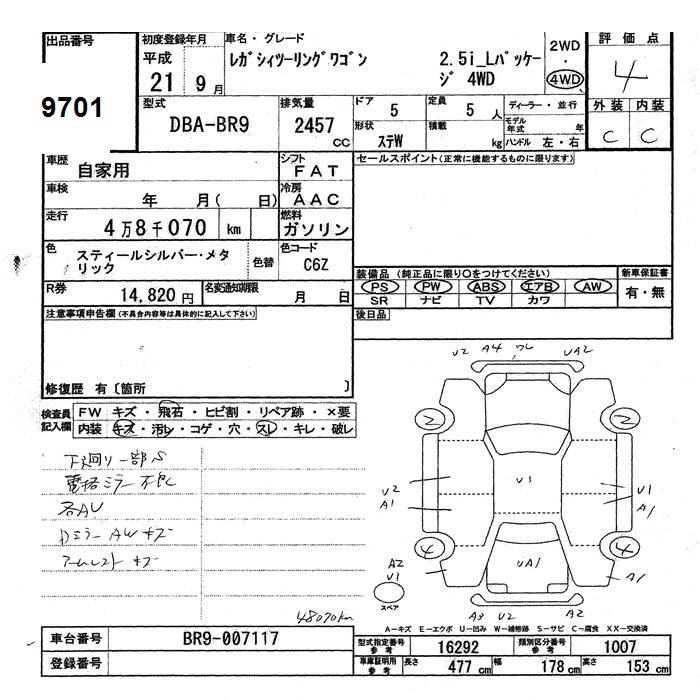 出品番号
9701
初度登録年月
平成
21 9月
車名・グレード
レガシィツーリングワゴン 2.5i_Lパッケージ 4WD
2WD
・
4WD
評価点
4
外装 内装
C C
型式
DBA-BR9
排気量
2457 CC
ドア
5
定員
5 人
ディーラー・並行
形状
ステW
積載
kg
モデル年式 年
ハンドル 左・右
車歴
自家用
シフト
FAT
車検
年 月( 日)
冷房
AAC
走行
4万8千070 km
燃料
ガソリン
色
スティールシルバー・メタリック
色替
色コード
C6Z
R券
14,820円
名変通知期限
月 日
セールスポイント(正常に機能するものに限ります)
装備品(純正品に限り○をつけてください)
新車保証書
PS PW ABS エアB AW
有・無
SR ナビ TV カワ
後日品
注意事項申告欄(不具合内容等は具体的に記入して下さい)
修復歴 有〔箇所 〕
検査員記入欄
FW キズ・飛石・ヒビ割・リペア跡・×要
内装 キズ・汚レ・コゲ・穴・スレ・キレ・破レ
下廻リ一部S
電格ミラー不良
各AU
DミラーAWキズ
アームレストキズ
48070km
U2 A4 ワレ UA2
2 2
U2
A1
U1
U1
A1
4 4
A2
U1
UA1
A1
スペア
A3 U2 A2
A-キズ E-エクボ U-凹み W-補修跡 S-サビ C-腐食 XX-交換済
車台番号
BR9-007117
登録番号
型式指定番号参考
16292
類別区分番号参考
1007
車庫証明用参考
長さ 477 cm
幅 178 cm
高さ 153 cm